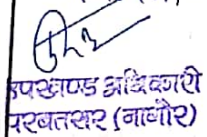 उपखण्ड अधिकारी
परबतसर (नागौर)